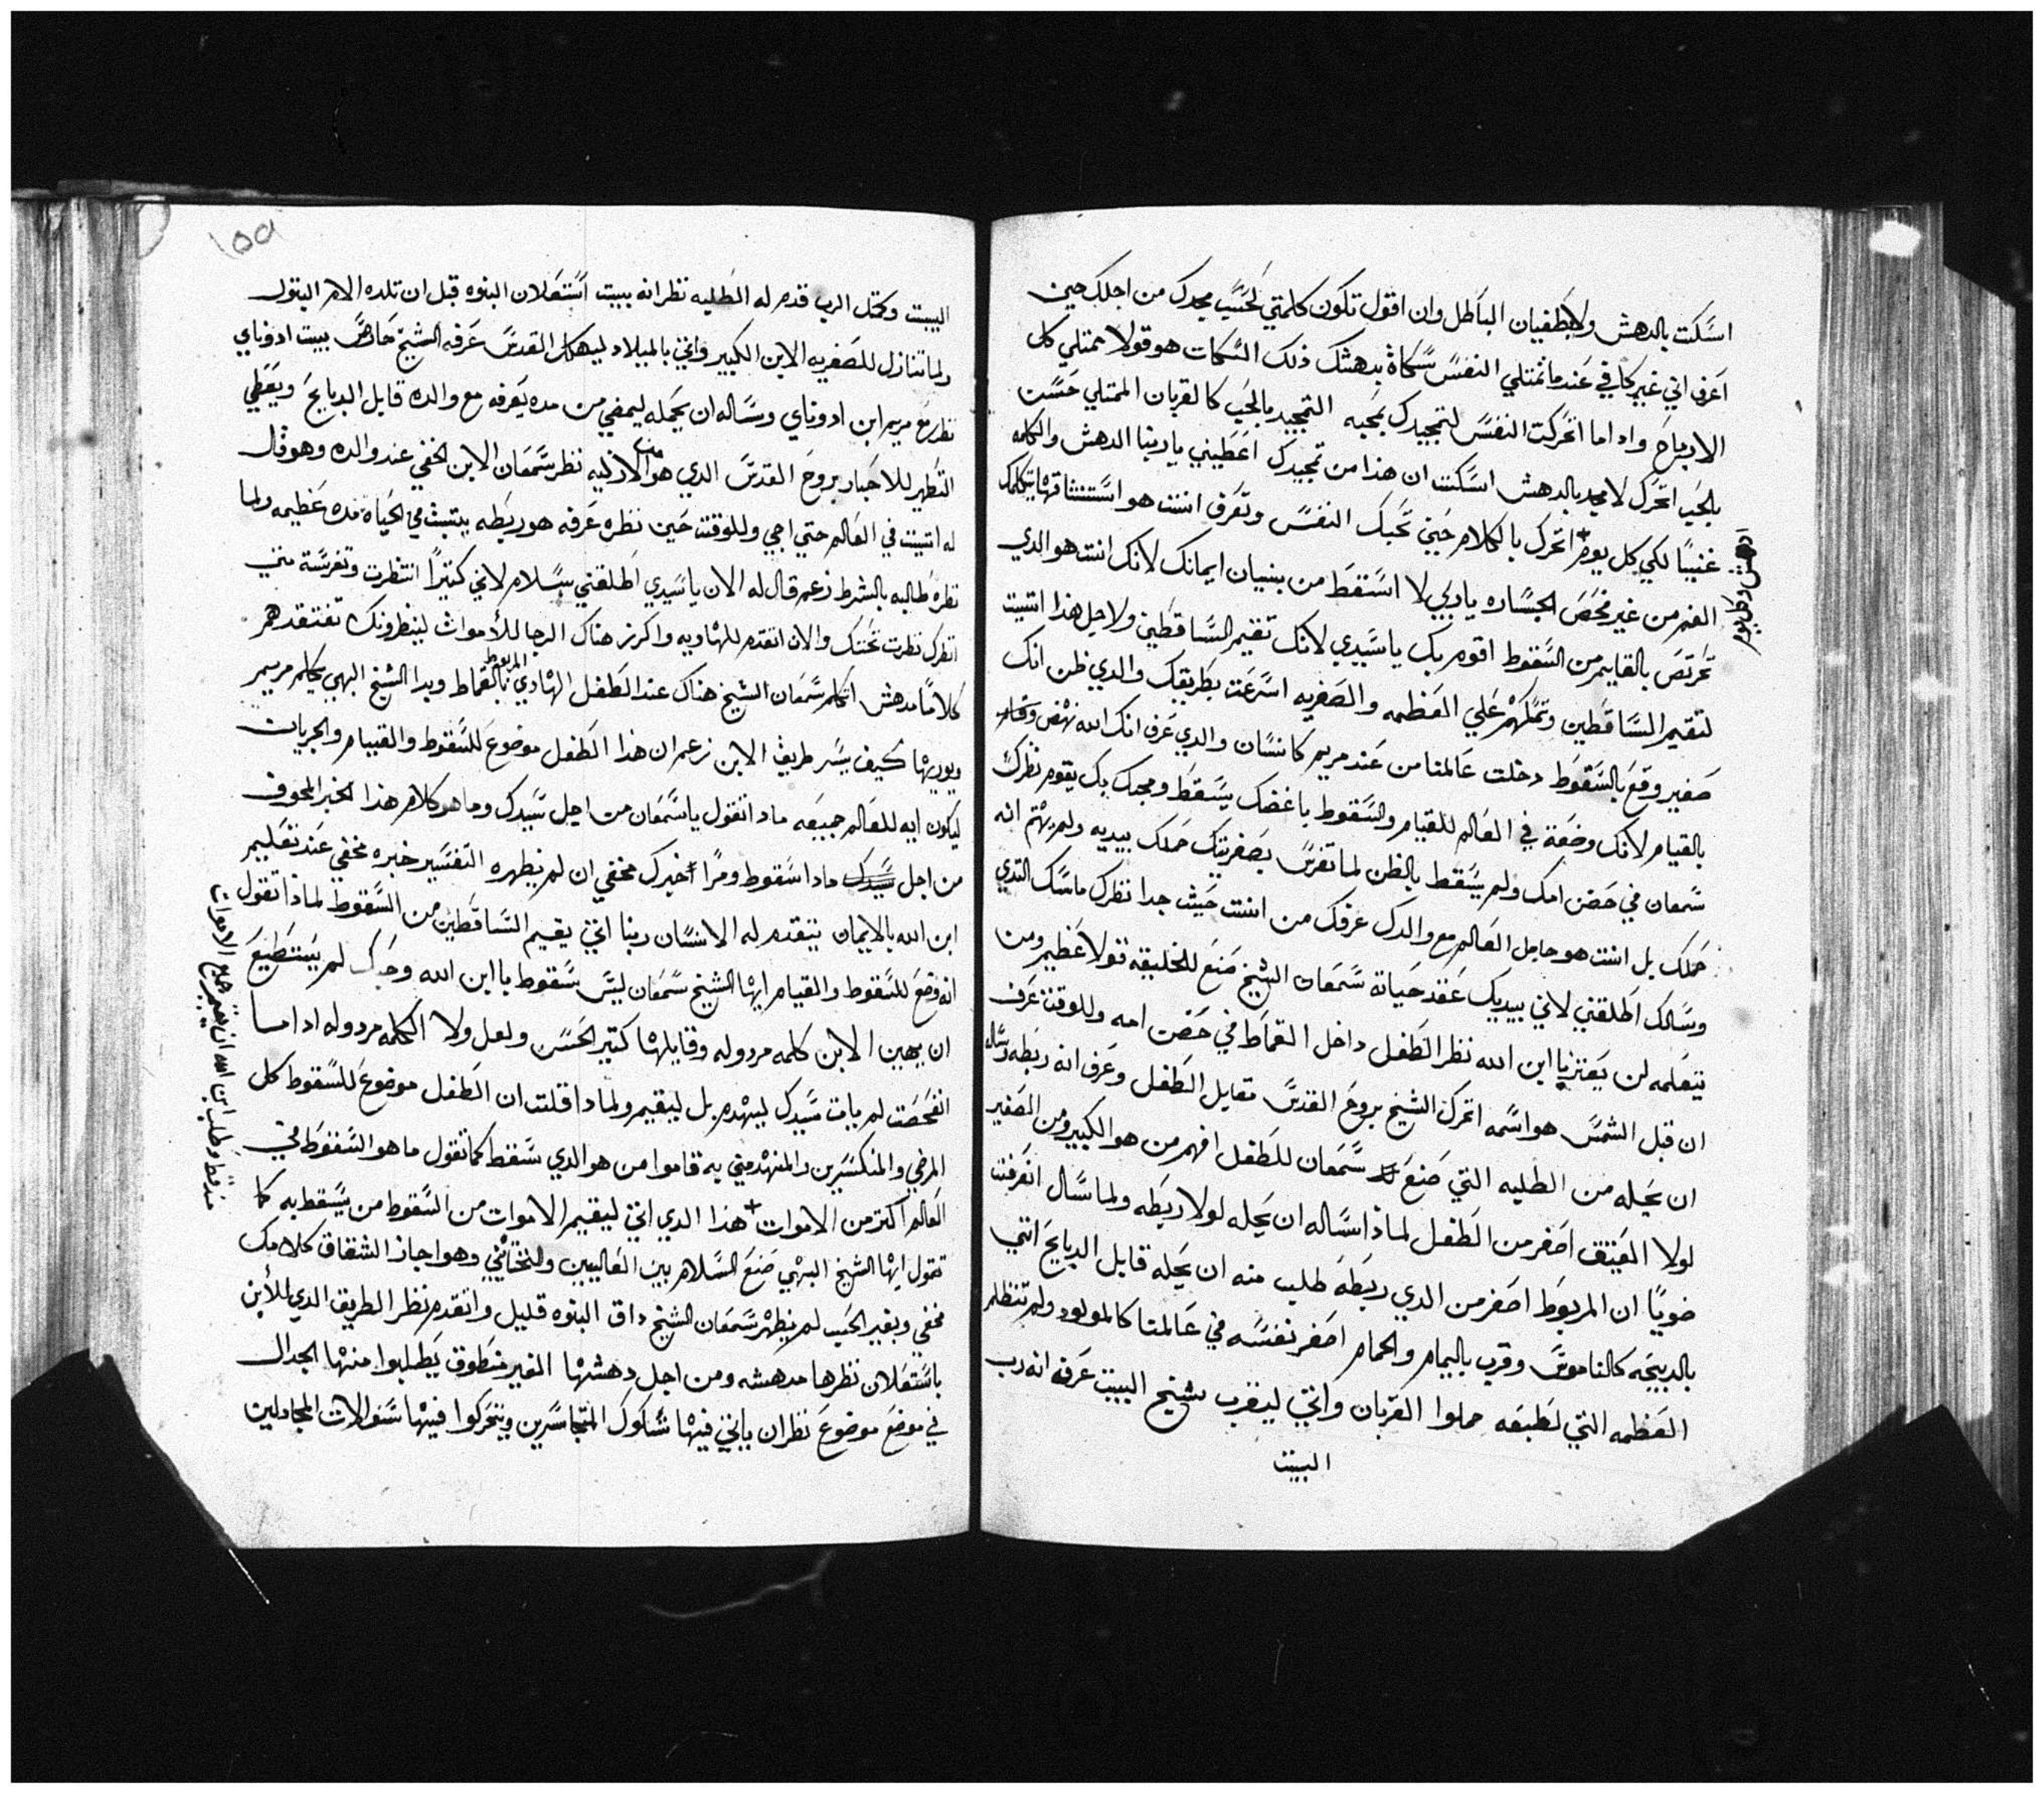 اسكت بالدهش ولا بطغيان الباطل وان اقول تكون كلمتي لحسب مجدك من اجلك حين
اعرف اني غير كافي عندما تمتلي النفس سكاة بدهشك ذلك السكات هو قولا ممتلي كل
الارباح واداما اتحركت النفس لتمجيدك بمحبه التمجيد بالحب كالقربان الممتلي حسنت
بالحب اتحرك لا مجد بالدهش اسكت ان هذا من تمجيدك اعطيني ياربنا الدهش والكلمه
غنيا لكي كل يوم اتحرك بالكلام حين تحبك النفس وتعرف انت هو استنشاقها بتكلمك
الفم من غير فحص الجساره ياربي لا اسقط من بنيان ايمانك لانك انت هو الدي
تحرتص بالقايم من السقوط اقوم بك ياسيدي لانك تقيم الساقطين ولاجل هذا اتيت
لتقيم الساقطين وتملكهم علي العظمه والصغريه اسرعت بطريقك والدي ظن انك
صغير وقع بالسقوط دخلت عالمنا من عند مريم كانسان والدي عرف انك الله نهض وقام
بالقيام لانك وضعة في العالم للقيام والسقوط باغضك يسقط ومحبك بك يقوم نظرك
سمعان في حضن امك ولم يسقط بالظن لما تفرس بصغريتك حملك بيديه ولم يهتم انه
حملك بل انت هو حامل العالم مع والدك عرفك من انت حيث جدا نظرك ماسك التدي
وسالك اطلقني لاني بيديك عقد حياة سمعان الشيخ صنع للخليقه قولا عظيم ومن
يتعلمه لن يعتز يا ابن الله نظر الطفل داخل القماط في حضن امه وللوقت عرف
ان قبل الشمس هو اسمه اتحرك الشيخ بروح القدس مقابل الطفل وعرف انه ربطه وساله
ان يحله من الطلبه التي صنع سمعان للطفل افهم من هو الكبير ومن الصغير
لولا العتيق اصغر من الطفل لماذا اساله ان يحله لولا ربطه ولما سال انعرفت
ضويا ان المربوط اصغر من الدي ربطه طلب منه ان يحله قابل الدبايح اتي
بالدبيحه كالناموس وقرب باليمام والحمام اصغر نفسه في عالمنا كالمولود ولم تنظلم
العظمه التي لطبعه حملوا القربان واتي ليقرب شيخ البيت عرفه انه رب
البيت
البيت وكمتل الرب قدم له الطلبه نظر انه ببيت استعلان البنوه قبل ان تلده الام البتول
ولما تنازل للصغريه الابن الكبير واتي بالميلاد لهيكل القدس عرفه الشيخ حاضر ببيت ادوناي
نظر مع مريم ابن ادوناي وساله ان يحله ليمضي من مده يعرفه مع والده قابل الدبايح ويعطي
التطهير للاحبار بروح القدس الدي هو الازليه نظر سمعان الابن الخفي عند والده وهو قال
له اتيت في العالم حتي اجي وللوقت حين نظره عرفه هو ربطه يتبت في الحياة مده عظيمه ولما
نظره طالبه بالشرط زعم قال له الان ياسيدي اطلقني بسلام لاني كتيرا انتظرت وتفرسة متي
انظرك نظرت تحننك والان اتقدم للهاويه واكرز هناك الرجا للأموات لينظرونك تفتقدهم
كلاما مدهش اتكلم سمعان الشيخ هناك عند الطفل الهادي المربوط بالقماط وبدا الشيخ البهي يكلم مريم
ويوريها كيف يسر طريق الابن زعم ان هذا الطفل موضوع للسقوط والقيام والجريات
ليكون ايه للعالم جميعه مادا تقول ياسمعان من اجل سيدك وما هو كلام هذا الخبر المخوف
من اجل سيدك مادا سقوط ومرا خبرك مخفي ان لم يظهره التفسير خبره مخفي عند تعليم
ابن الله بالايمان يتقدم له الانسان ربنا اتي يقيم الساقطين من السقوط لماذا تقول
انه وضع للسقوط والقيام ايها الشيخ سمعان ليس سقوط يا ابن الله وحبك لم يستطيع
ان يهين الابن كلمه مردوله وقايلها كتير الحسن ولعل ولا الكلمه مردوله اداما
انفحصت لم يات سيدك ليهدم بل ليقيم ولمادا قلت ان الطفل موضوع للسقوط كل
المرضي والمنكسرين والمنهدمين به قاموا من هو الدي سقط كما تقول ما هو السقوط في
العالم اكتر من الاموات هذا الدي اتي ليقيم الاموات من السقوط من يسقط به كما
تقول ايها الشيخ البهي صنع السلام بين العاليين والتحتانيين وهو اجاز الشقاق كلامك
مخفي وبغير الحب لم يظهر سمعان الشيخ داق البنوه قليل واتقدم نظر الطريق الدي للأبن
باستعلان نظرها مدهشه ومن اجل دهشها الغير منطوق يطلبوا منها الجدال
في موضع موضوع نظر ان ياتي فيها شكوك المتجاسرين ويتحركوا فيها سوالات المجادلين